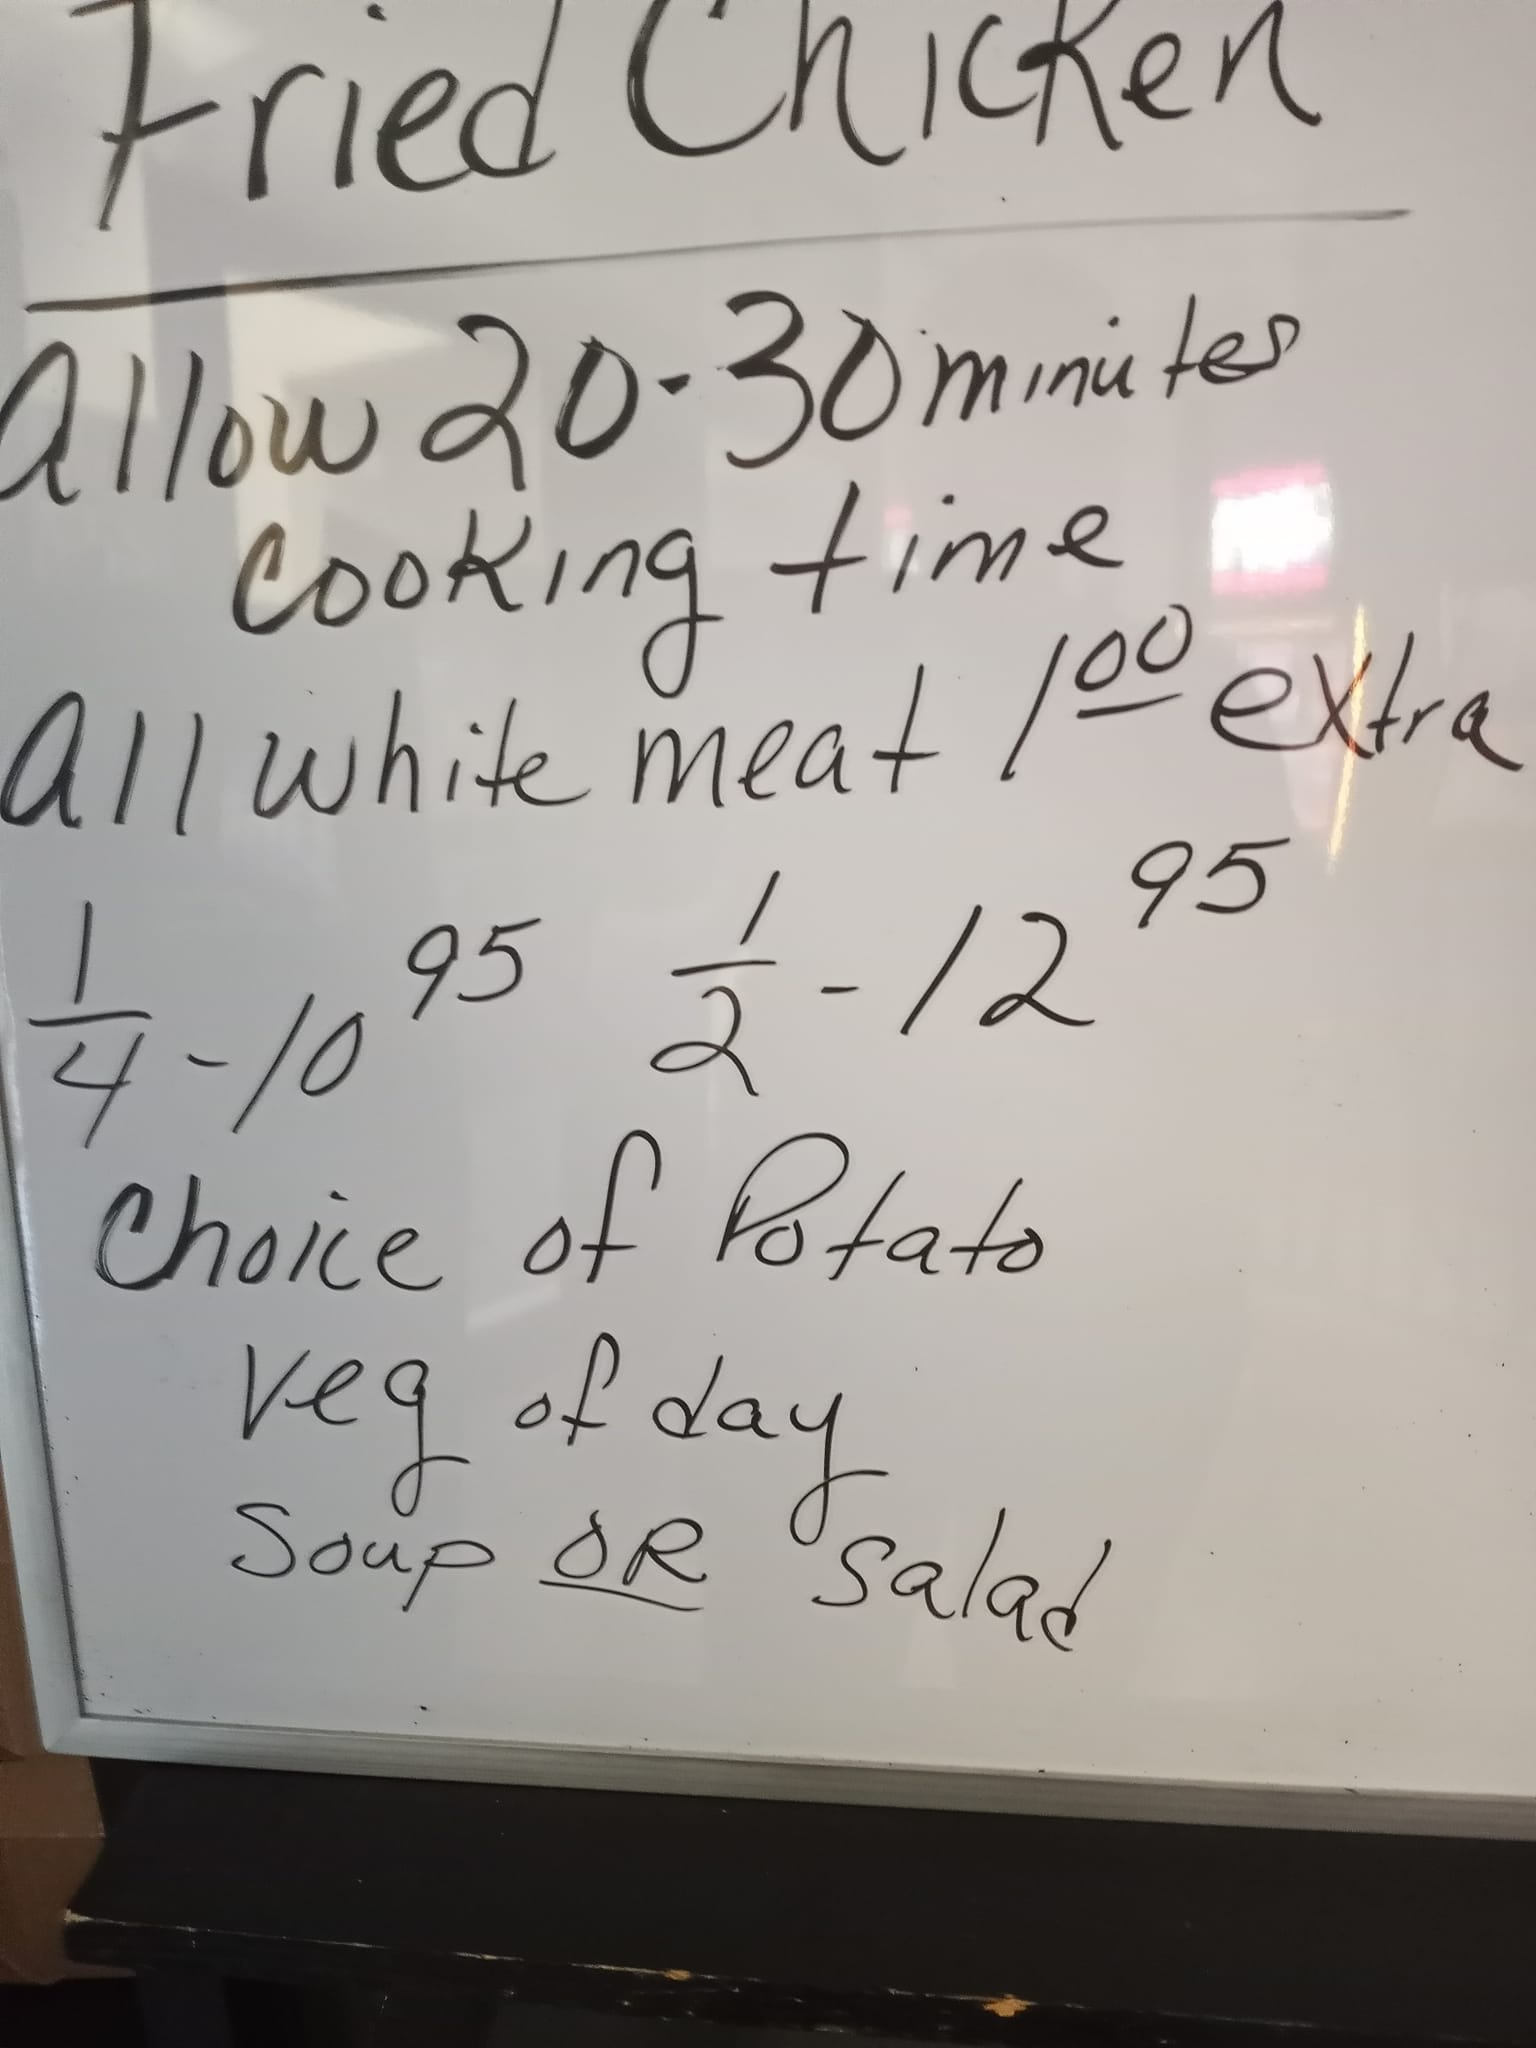 Fried Chicken
allow 20-30 minutes
cooking time
all white meat 1 00 extra
1/4 - 10 95 1/2 - 12 95
Choice of Potato
Veg of day
Soup OR salad